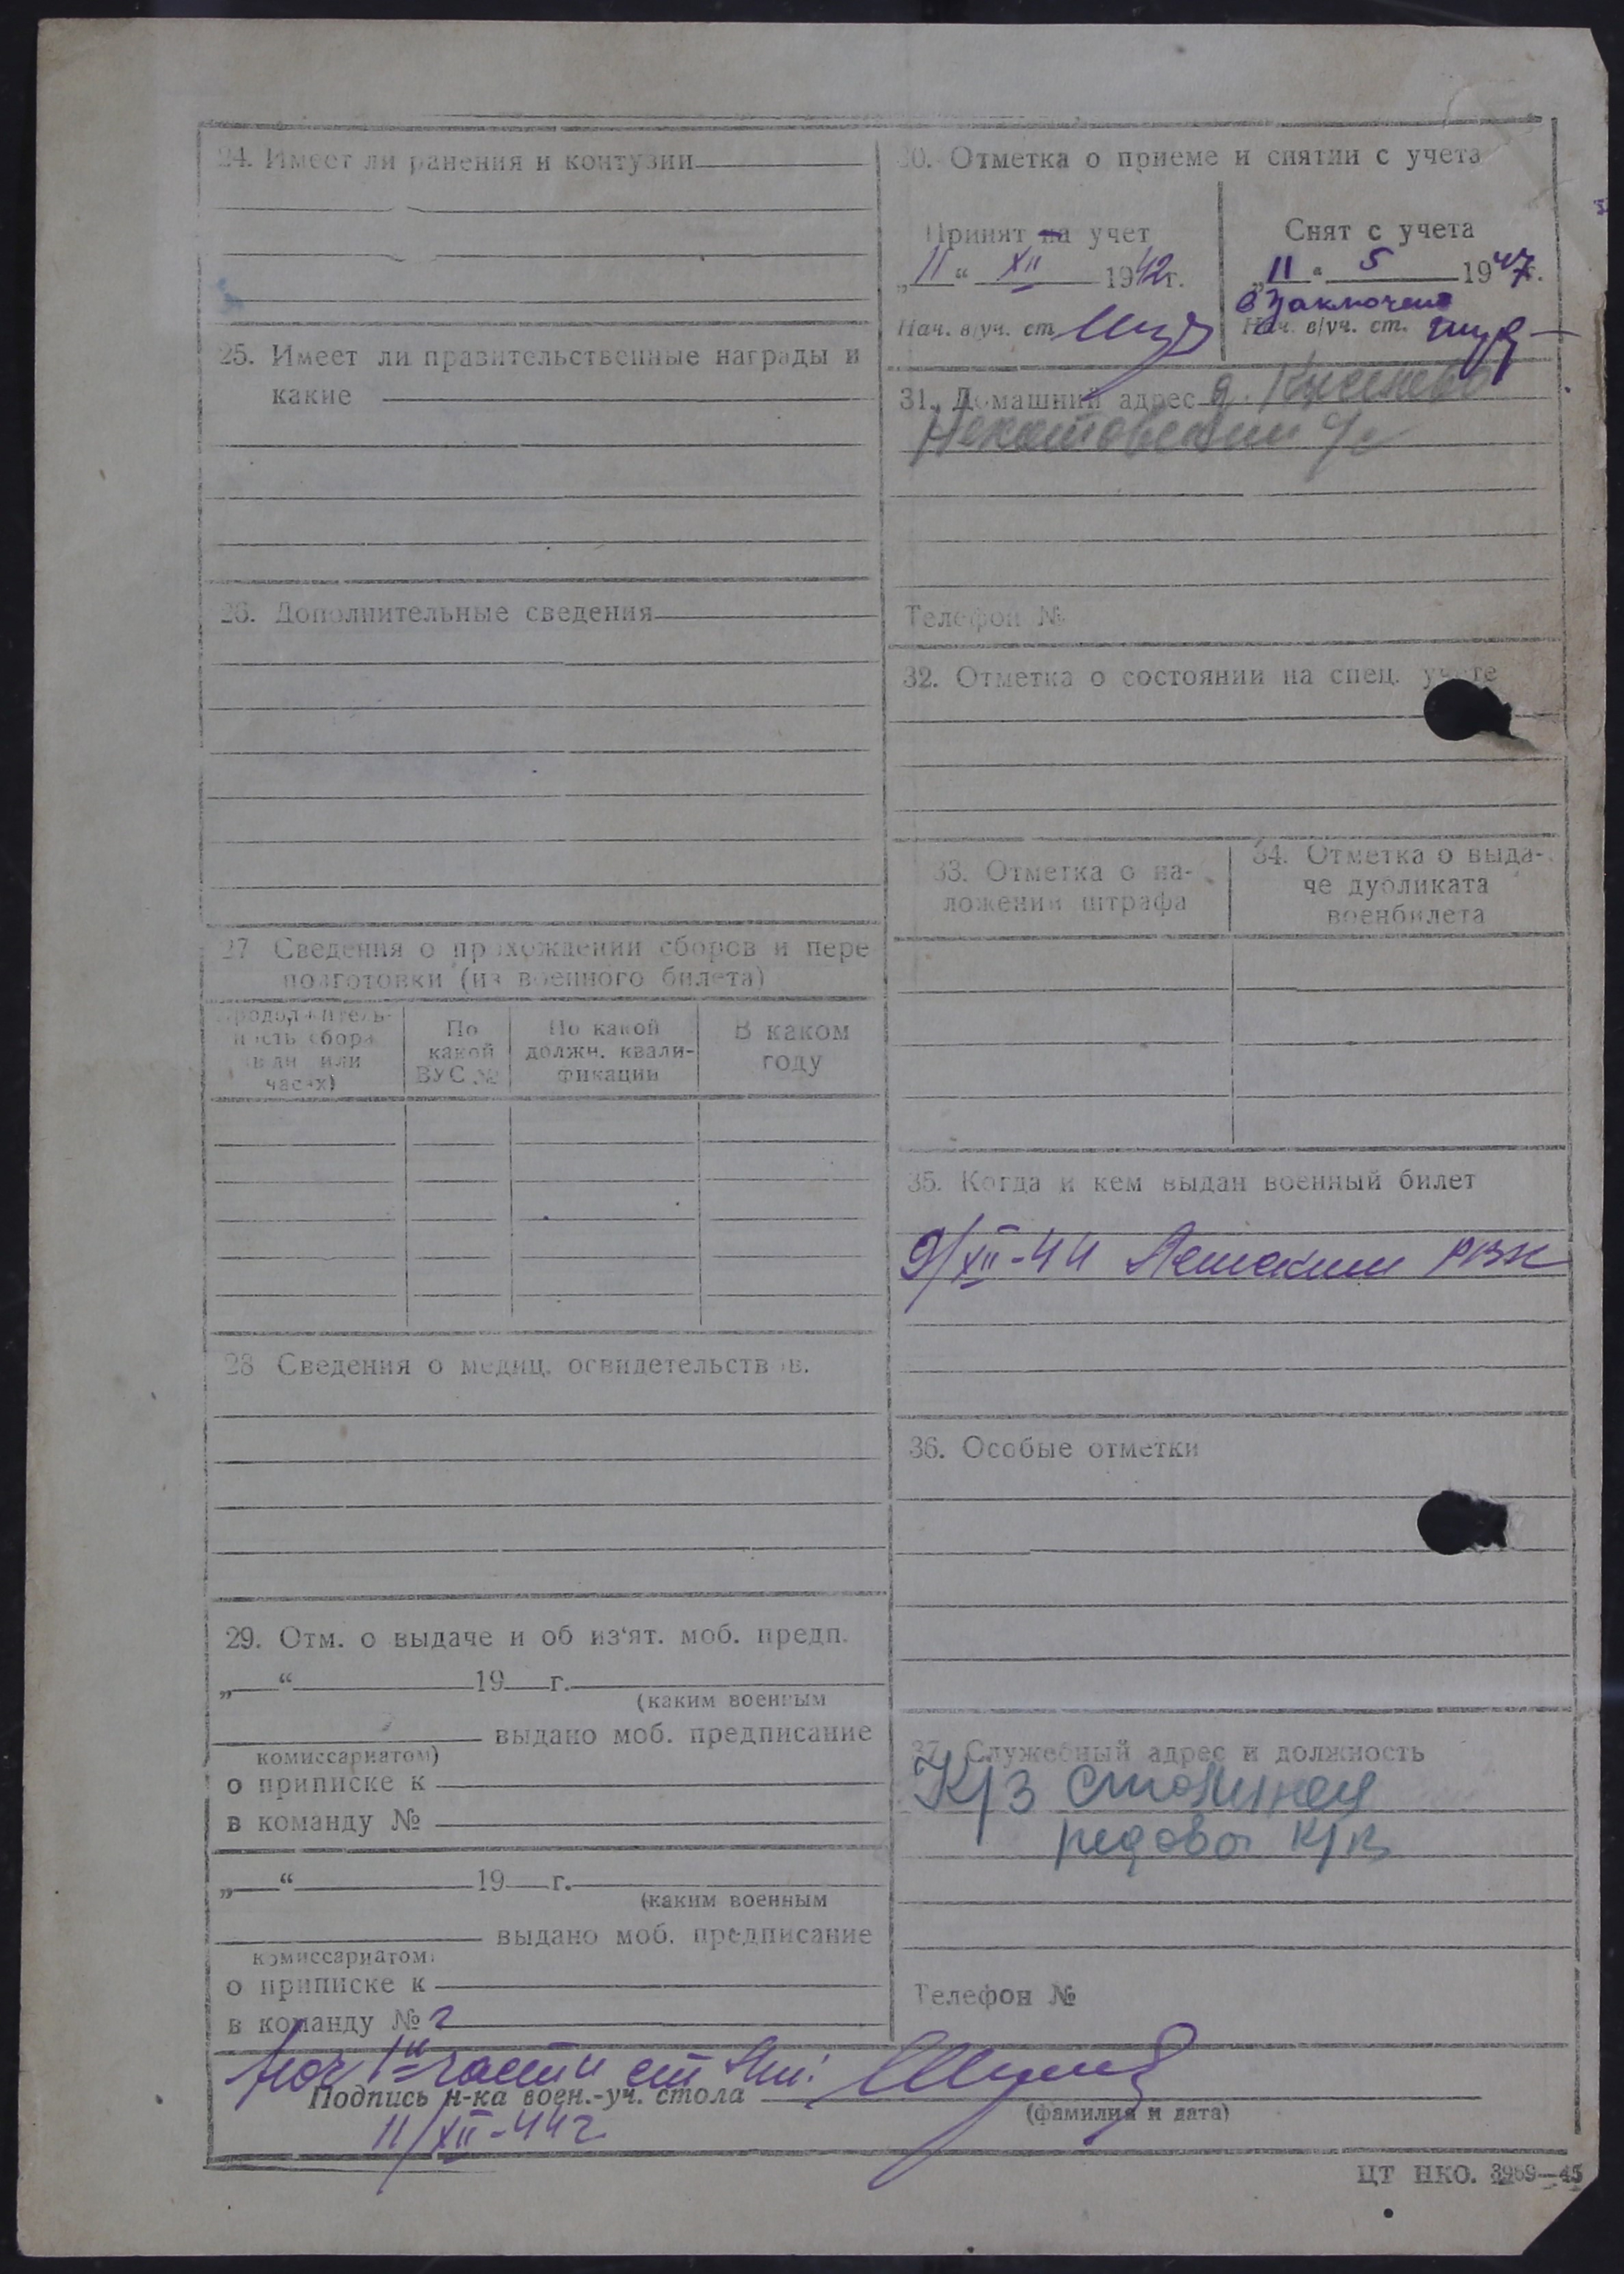 24. Имеет ли ранения и контузии
25. Имеет ли правительственные награды и
какие
26. Дополнительные сведения
27 Сведения о прохождении сборов и пере
подготовки (из военного билета)
Продолжитель-
ность сбора
(в дн или
часах)
По
какой
ВУС №
По какой
должн. квали-
фикации
В каком
году
28 Сведения о медиц. освидетельствов.
29. Отм. о выдаче и об из‘ят. моб. предп.
„ “ 19 г.
(каким военным
выдано моб. предписание
комиссариатом)
о приписке к
в команду №
„ “ 19 г.
(каким военным
выдано моб. предписание
комиссариатом)
о приписке к
в команду №
30. Отметка о приеме и снятии с учета
Принят на учет
„11“ XII 1942г.
Нач. в/уч. ст
Снят с учета
„11“ 5 1947г.
в заключено
Нач. в/уч. ст.
31. Домашний адрес д.
с/с
Телефон №
32. Отметка о состоянии на спец. учете
33. Отметка о на-
ложении штрафа
34. Отметка о выда-
че дубликата
военбилета
35. Когда и кем выдан военный билет
9/XII-44 РВК
36. Особые отметки
37. Служебный адрес и должность
К/З Сталинец
редовой К/К
Телефон №
Нач 1й части ст Лт:
Подпись н-ка воен.-уч. стола
(фамилия и дата)
11/XII-44г.
ЦТ НКО. 3959—45